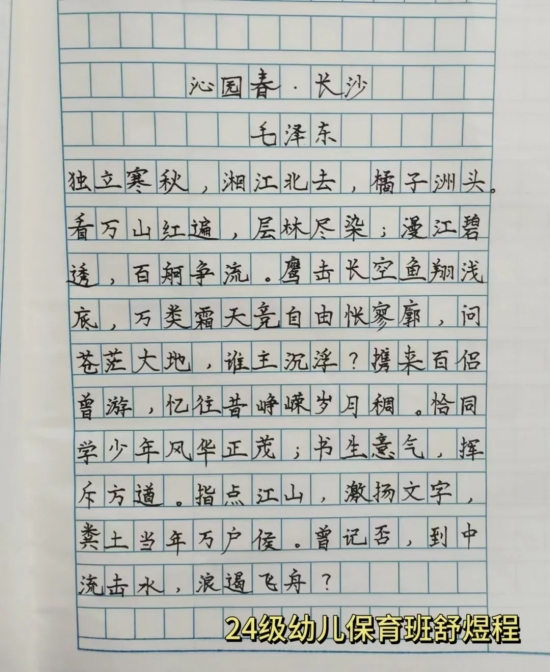 沁园春·长沙
毛泽东
独立寒秋，湘江北去，橘子洲头。
看万山红遍，层林尽染；漫江碧
透，百舸争流。鹰击长空鱼翔浅
底，万类霜天竞自由怅寥廓，问
苍茫大地，谁主沉浮？携来百侣
曾游，忆往昔峥嵘岁月稠。恰同
学少年风华正茂；书生意气，挥
斥方遒。指点江山，激扬文字，
粪土当年万户侯。曾记否，到中
流击水，浪遏飞舟？
24级幼儿保育班舒煜程